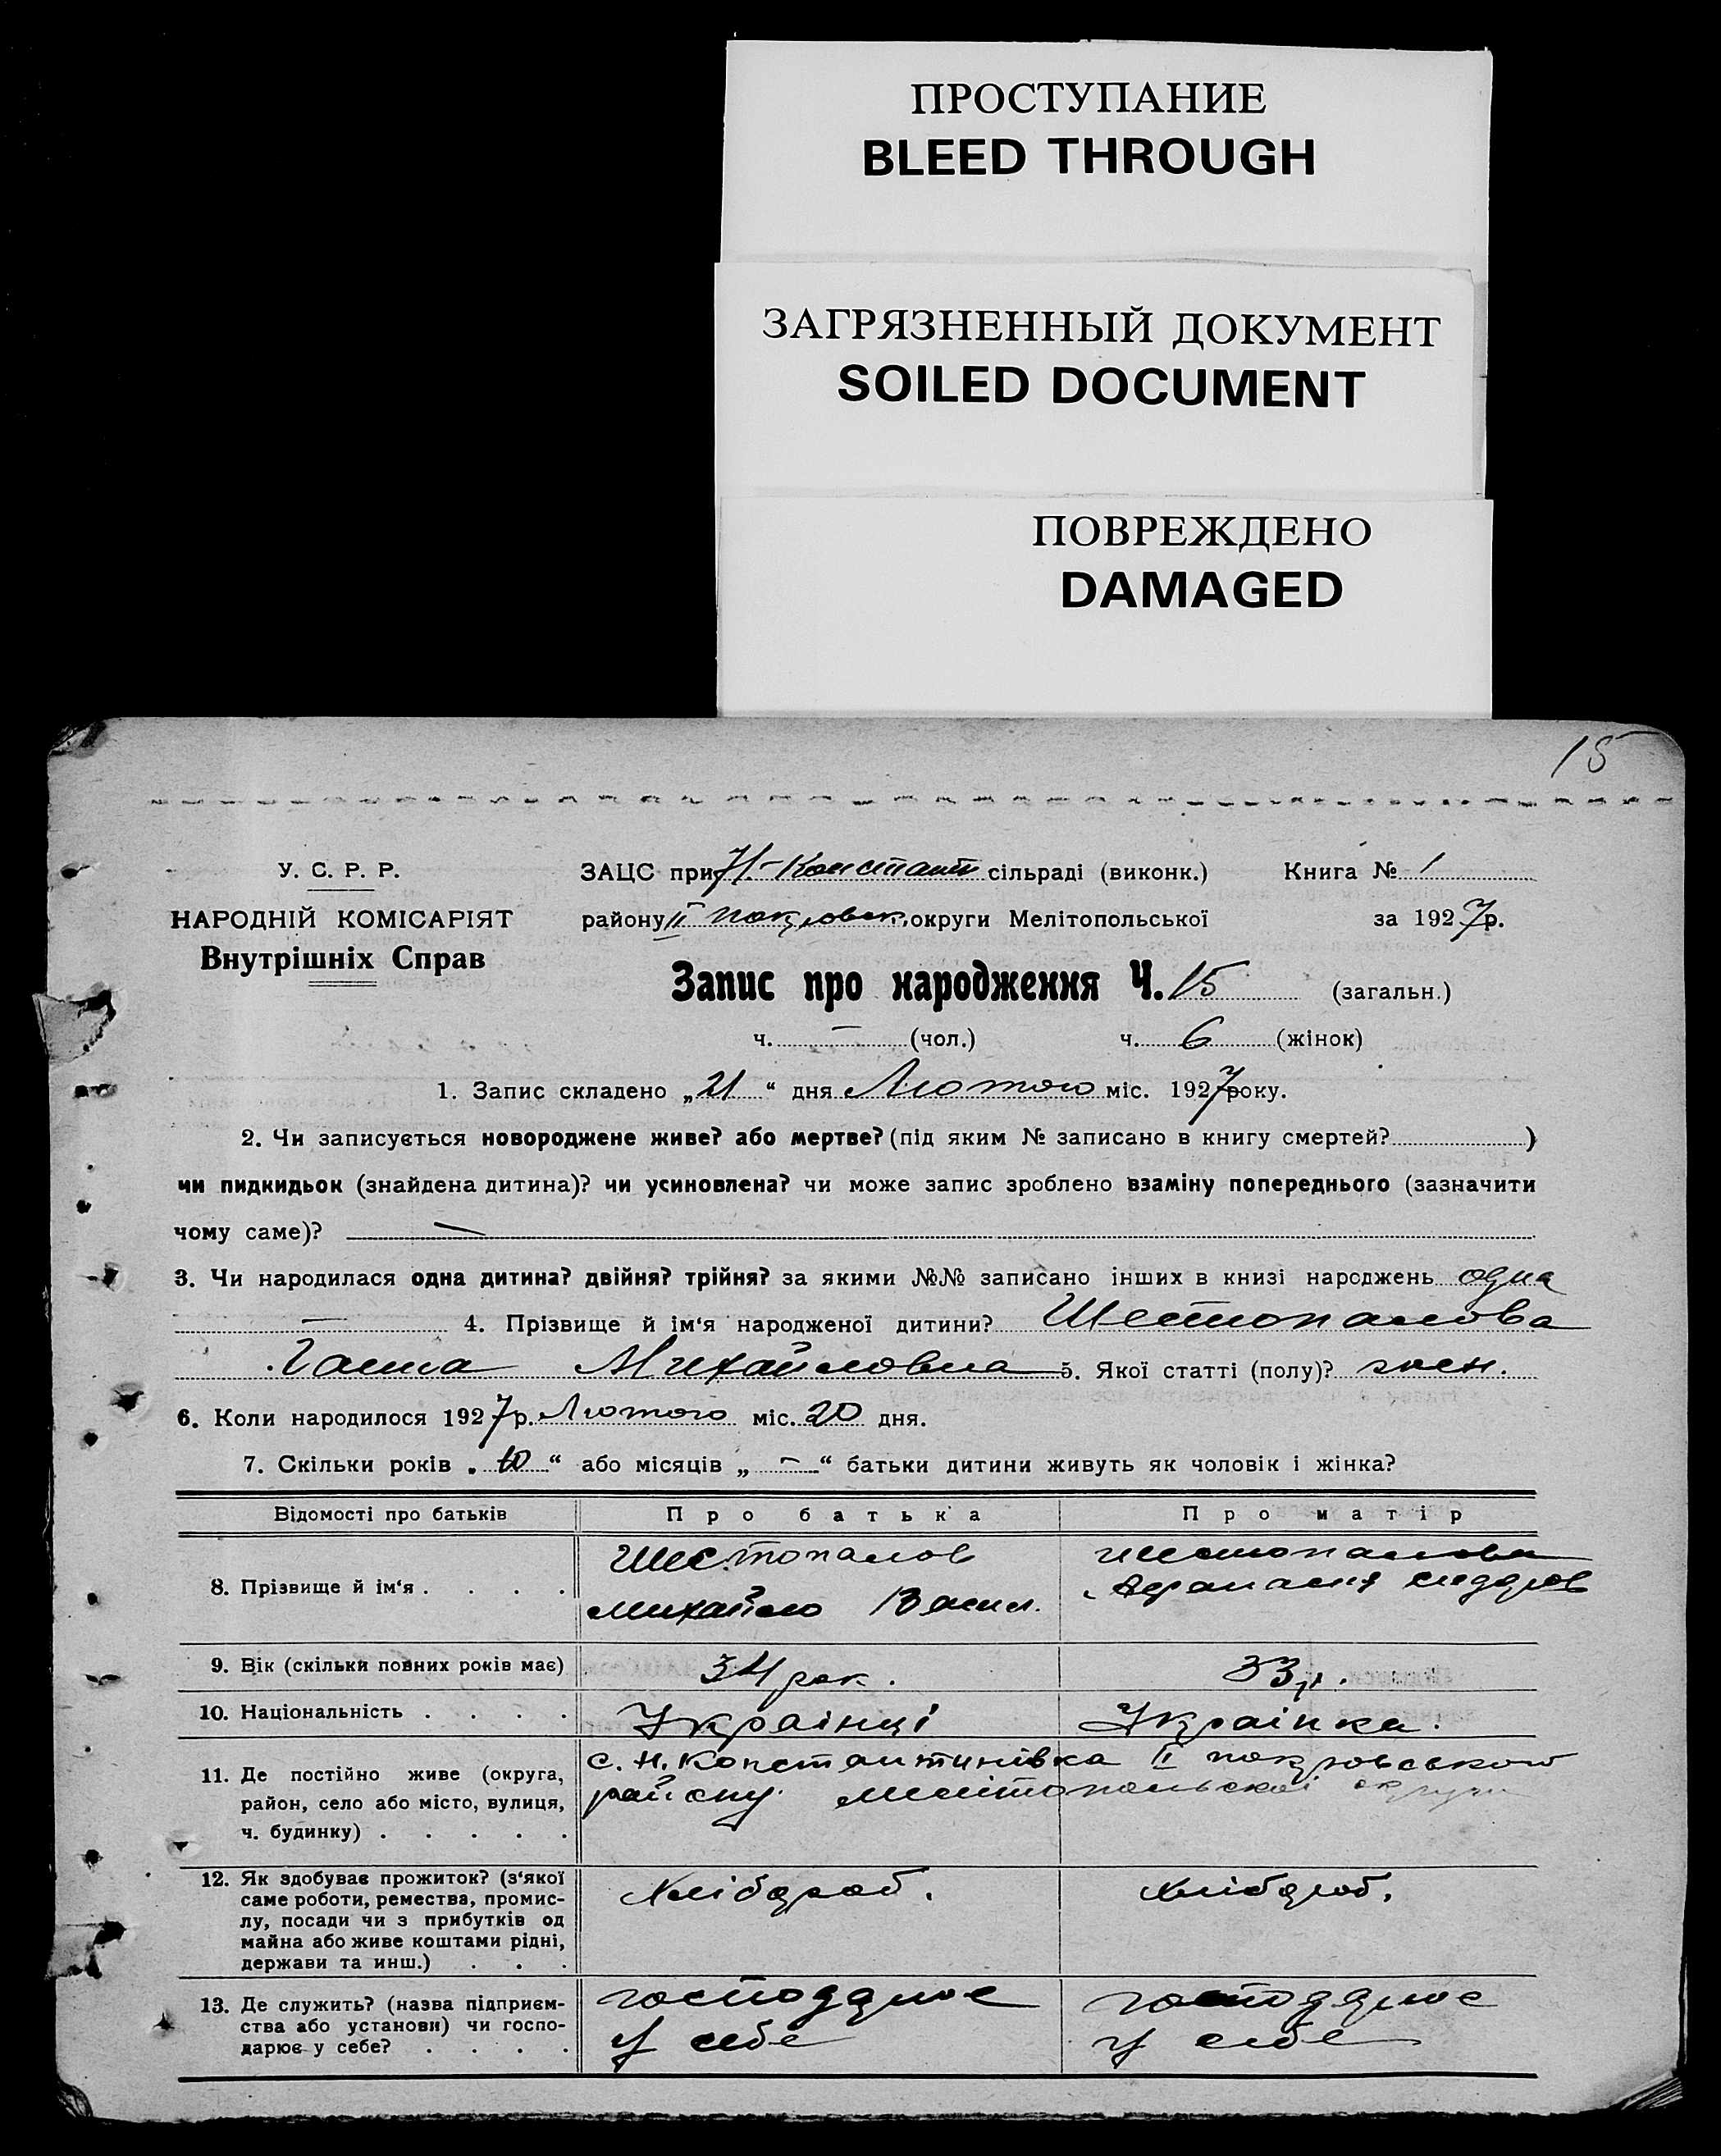 ПРОСТУПАНИЕ
BLEED THROUGH
ЗАГРЯЗНЕННЫЙ ДОКУМЕНТ
SOILED DOCUMENT
ПОВРЕЖДЕНО
DAMAGED
15
У. С. Р. Р.
НАРОДНІЙ КОМІСАРІЯТ
Внутрішніх Справ
ЗАЦС при Н-Констант сільраді (виконк.) Книга № 1
району ІІ покровськ. округи Мелітопольської за 1927 р.
Запис про народження Ч. 15 (загальн.)
ч. — (чол.) ч. 6 (жінок)
1. Запис складено „21“ дня Лютого міс. 1927 року.
2. Чи записується новороджене живе? або мертве? (під яким № записано в книгу смертей? )
чи пидкидьок (знайдена дитина)? чи усиновлена? чи може запис зроблено взаміну попереднього (зазначити
чому саме)? —
3. Чи народилася одна дитина? двійня? трійня? за якими №№ записано інших в книзі народжень одна
— 4. Прізвище й ім'я народженої дитини? Шестопалова
Ганна Михайловна 5. Якої статті (полу)? жен.
6. Коли народилося 1927 р. Лютого міс. 20 дня.
7. Скільки років „10“ або місяців „—“ батьки дитини живуть як чоловік і жінка?
Відомості про батьків Про батька Про матір
8. Прізвище й ім'я . . . .
Шестопалов
Михайло Васил.
Шестопалова
9. Вік (скільки повних років має) 34 рок. 33 р.
10. Національність . . . . Українці Українка.
11. Де постійно живе (округа,
район, село або місто, вулиця,
ч. будинку) . . . . .
с. Н. Константинівка ІІ покровського
району Мелітопольскої округи
12. Як здобуває прожиток? (з'якої
саме роботи, ремества, промис-
лу, посади чи з прибутків од
майна або живе коштами рідні,
держави та инш.) . . .
Хлібороб.
хлібороб.
13. Де служить? (назва підприєм-
ства або установи) чи госпо-
дарює у себе? . . . .
господарює
у себе
господарює
у себе